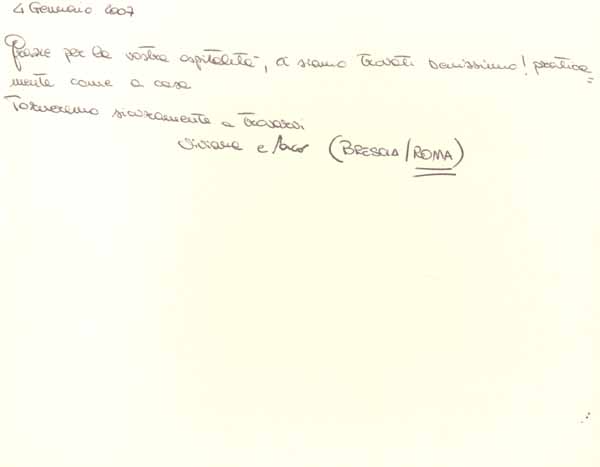 4 Gennaio 2007
Grazie per la vostra ospitalità, ci siamo trovati benissimo! pratica=
mente come a casa
Torneremo sicuramente a trovarvi
Viviana e (BRESCIA/ROMA)